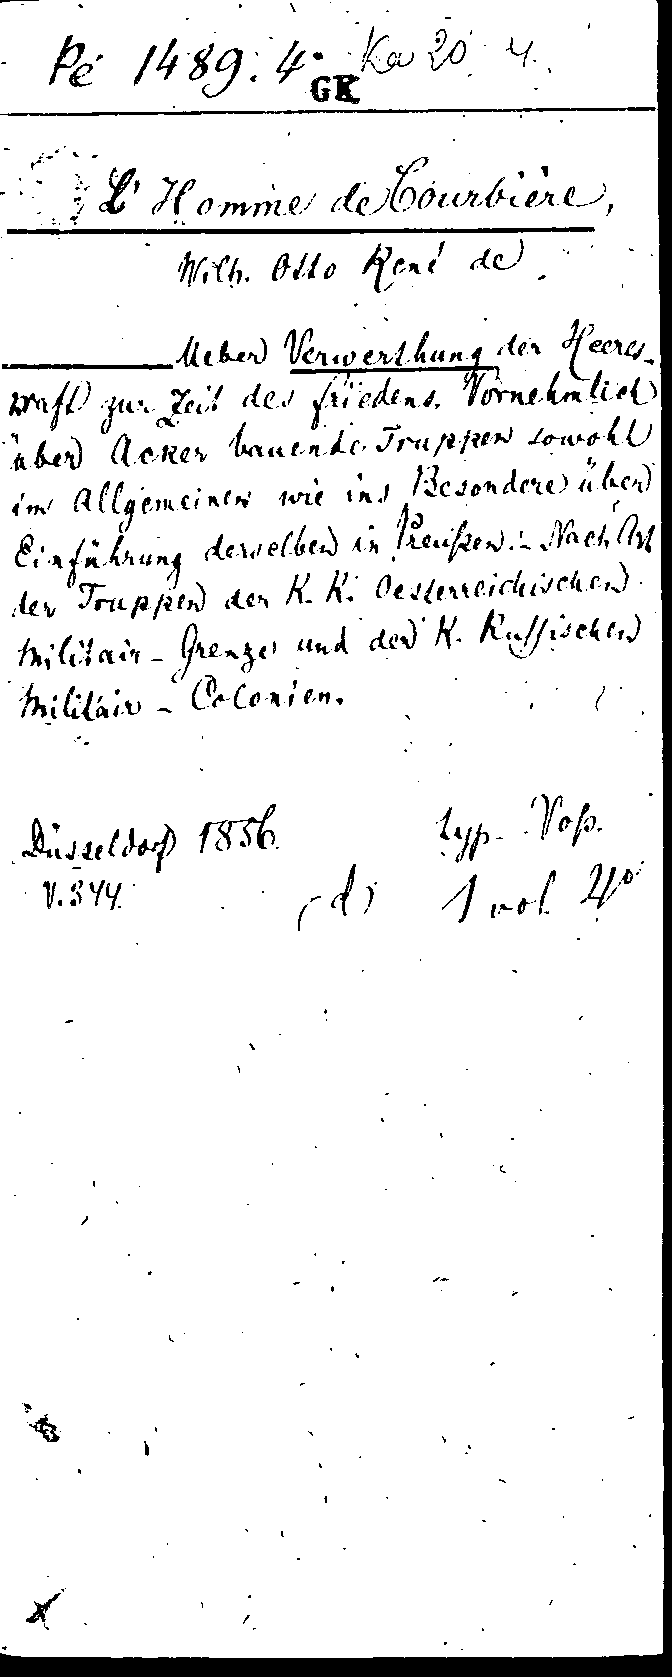 Pe 1489. 4° Ka 20 4.
GK
L'Homme de Courbière,
Wilh. Otto René de
Ueber Verwerthung der Heeres-
kraft zur Zeit des Friedens. Vornehmlich
über Acker bauende Truppen sowohl
im Allgemeinen wie ins Besondere über
Einführung derselben in Preußen: - Nach Art
der Truppen der K. K. Oesterreichischen
Militair - Grenze und der K. Russischen
Militair - Colonien.
Düsseldorf 1856. typ. Voß.
V. 344. (d) 1 vol. 4°